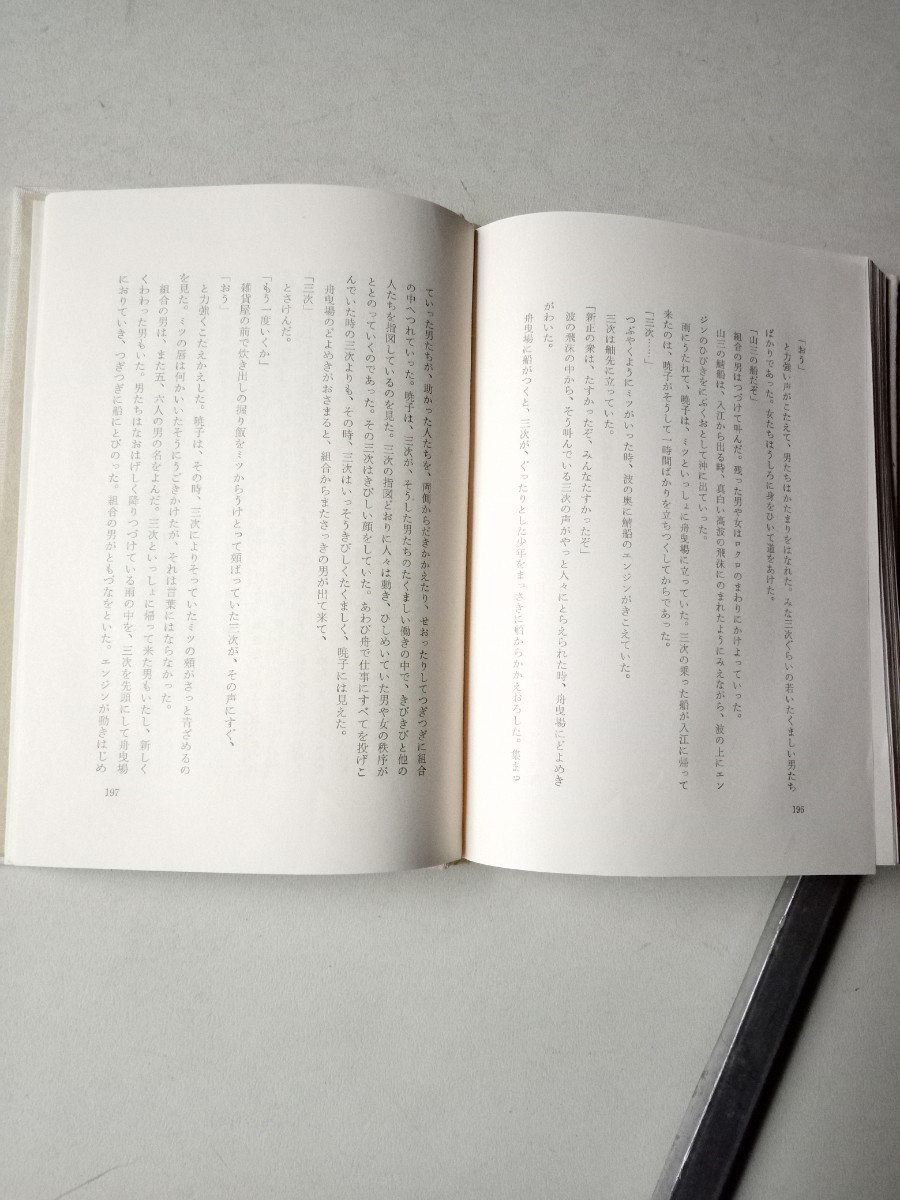 「おう」
と力強い声がこたえて、男たちはかたまりをはなれた。みな三次ぐらいの若いたくましい男たち
ばかりであった。女たちはうしろに身をひいて道をあけた。
「山三の船だぞ」
組合の男はつづけて叫んだ。残った男や女はロクロのまわりにかけよっていった。
山三の鯖船は、入江から出る時、真白い高波の飛沫にのまれたようにみえながら、波の上にエン
ジンのひびきをにぶくおとして沖に出ていった。
雨にうたれて、暁子は、ミツといっしょに舟曳場に立っていた。三次の乗った船が入江に帰って
来たのは、暁子がそうして一時間ばかりを立ちつくしてからであった。
「三次……」
つぶやくようにミツがいった時、波の奥に鯖船のエンジンがきこえていた。
三次は舳先に立っていた。
「新正の衆は、たすかったぞ、みんなたすかったぞ」
波の飛沫の中から、そう叫んでいる三次の声がやっと人々にとらえられた時、舟曳場にどよめき
がわいた。
舟曳場に船がつくと、三次が、ぐったりとした少年をまっさきに船からかかえおろした。集まっ
196
ていった男たちが、助かった人たちを、両側からだきかかえたり、せおったりしてつぎつぎに組合
の中へつれていった。暁子は、三次が、そうした男たちのたくましい働きの中で、きびきびと他の
人たちを指図しているのを見た。三次の指図どおりに人々は動き、ひしめいていた男や女の秩序が
ととのっていくのであった。その三次はきびしい顔をしていた。あわび舟で仕事にすべてを投げこ
んでいた時の三次よりも、その時、三次はいっそうきびしくたくましく、暁子には見えた。
舟曳場のどよめきがおさまると、組合からまたさっきの男が出て来て、
「三次」
とさけんだ。
「もう一度いくか」
雑貨屋の前で炊き出しの握り飯をミツからうけとって頬ばっていた三次が、その声にすぐ、
「おう」
と力強くこたえかえした。暁子は、その時、三次によりそっていたミツの頬がさっと青ざめるの
を見た。ミツの唇は何かいいたそうにうごきかけたが、それは言葉にはならなかった。
組合の男は、また五、六人の男の名をよんだ。三次といっしょに帰って来た男もいたし、新しく
くわわった男もいた。男たちはなおはげしく降りつづけている雨の中を、三次を先頭にして舟曳場
におりていき、つぎつぎに船にとびのった。組合の男がともづなをといた。エンジンが動きはじめ
197